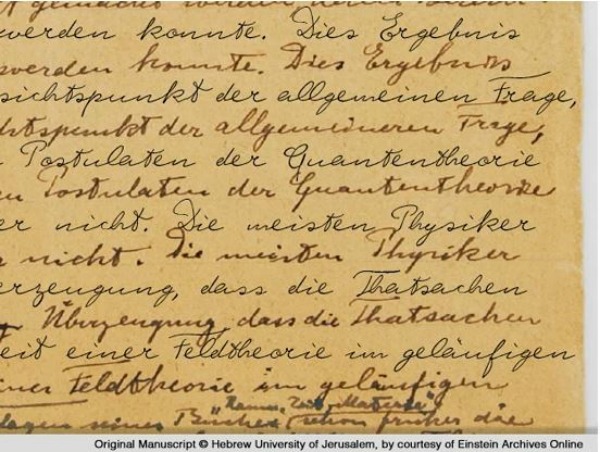 gemacht werden
werden konnte. Dies Ergebnis
werden konnte. Dies Ergebnis
sichtspunkt der allgemeinen Frage,
htspunkt der allgemeineren Frage,
Postulaten der Quantentheorie
en Postulaten der Quantentheorie
er nicht. Die meisten Physiker
r nicht. Die meisten Physiker
erzeugung, dass die Thatsachen
Überzeugung, dass die Thatsachen
eit einer Feldtheorie im geläufigen
einer Feldtheorie im geläufigen
"Raum, Zeit, Materie"
seines Buches schon früher die
Original Manuscript © Hebrew University of Jerusalem, by courtesy of Einstein Archives Online